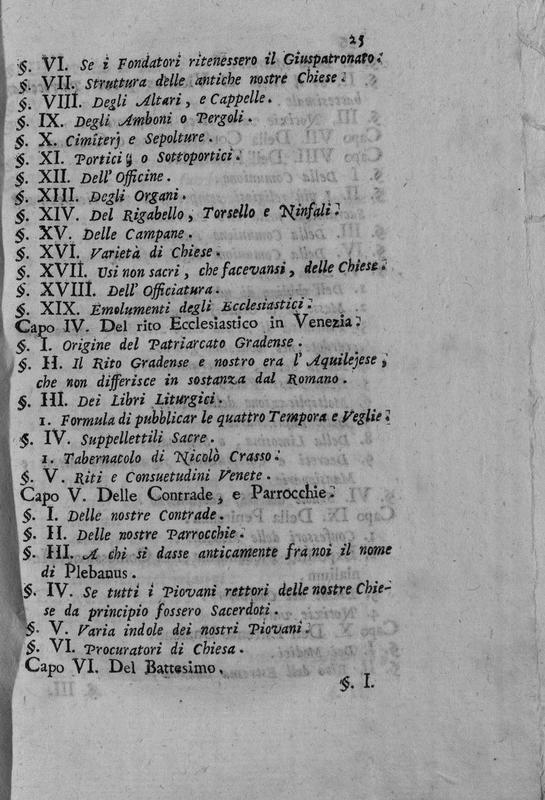 25
§. VI. Se i Fondatori ritenessero il Giuspatronato.
§. VII. Struttura delle antiche nostre Chiese.
§. VIII. Degli Altari, e Cappelle.
§. IX. Degli Amboni o Pergoli.
§. X. Cimiterj e Sepolture.
§. XI. Porticij o Sottoportici.
§. XII. Dell' Officine.
§. XIII. Degli Organi.
§. XIV. Del Rigabello, Torsello e Ninfali.
§. XV. Delle Campane.
§. XVI. Varietà di Chiese.
§. XVII. Usi non sacri, che facevansi, delle Chiese.
§. XVIII. Dell' Officiatura.
§. XIX. Emolumenti degli Ecclesiastici.
Capo IV. Del rito Ecclesiastico in Venezia.
§. I. Origine del Patriarcato Gradense.
§. II. Il Rito Gradense e nostro era l' Aquilejese,
che non differisce in sostanza dal Romano.
§. III. Dei Libri Liturgici.
1. Formula di pubblicar le quattro Tempora e Veglie.
§. IV. Suppellettili Sacre.
1. Tabernacolo di Nicolò Crasso.
§. V. Riti e Consuetudini Venete.
Capo V. Delle Contrade, e Parrocchie.
§. I. Delle nostre Contrade.
§. II. Delle nostre Parrocchie.
§. III. A chi si dasse anticamente fra noi il nome
di Plebanus.
§. IV. Se tutti i Piovani rettori delle nostre Chie-
se da principio fossero Sacerdoti.
§. V. Varia indole dei nostri Piovani.
§. VI. Procuratori di Chiesa.
Capo VI. Del Battesimo.
§. I.